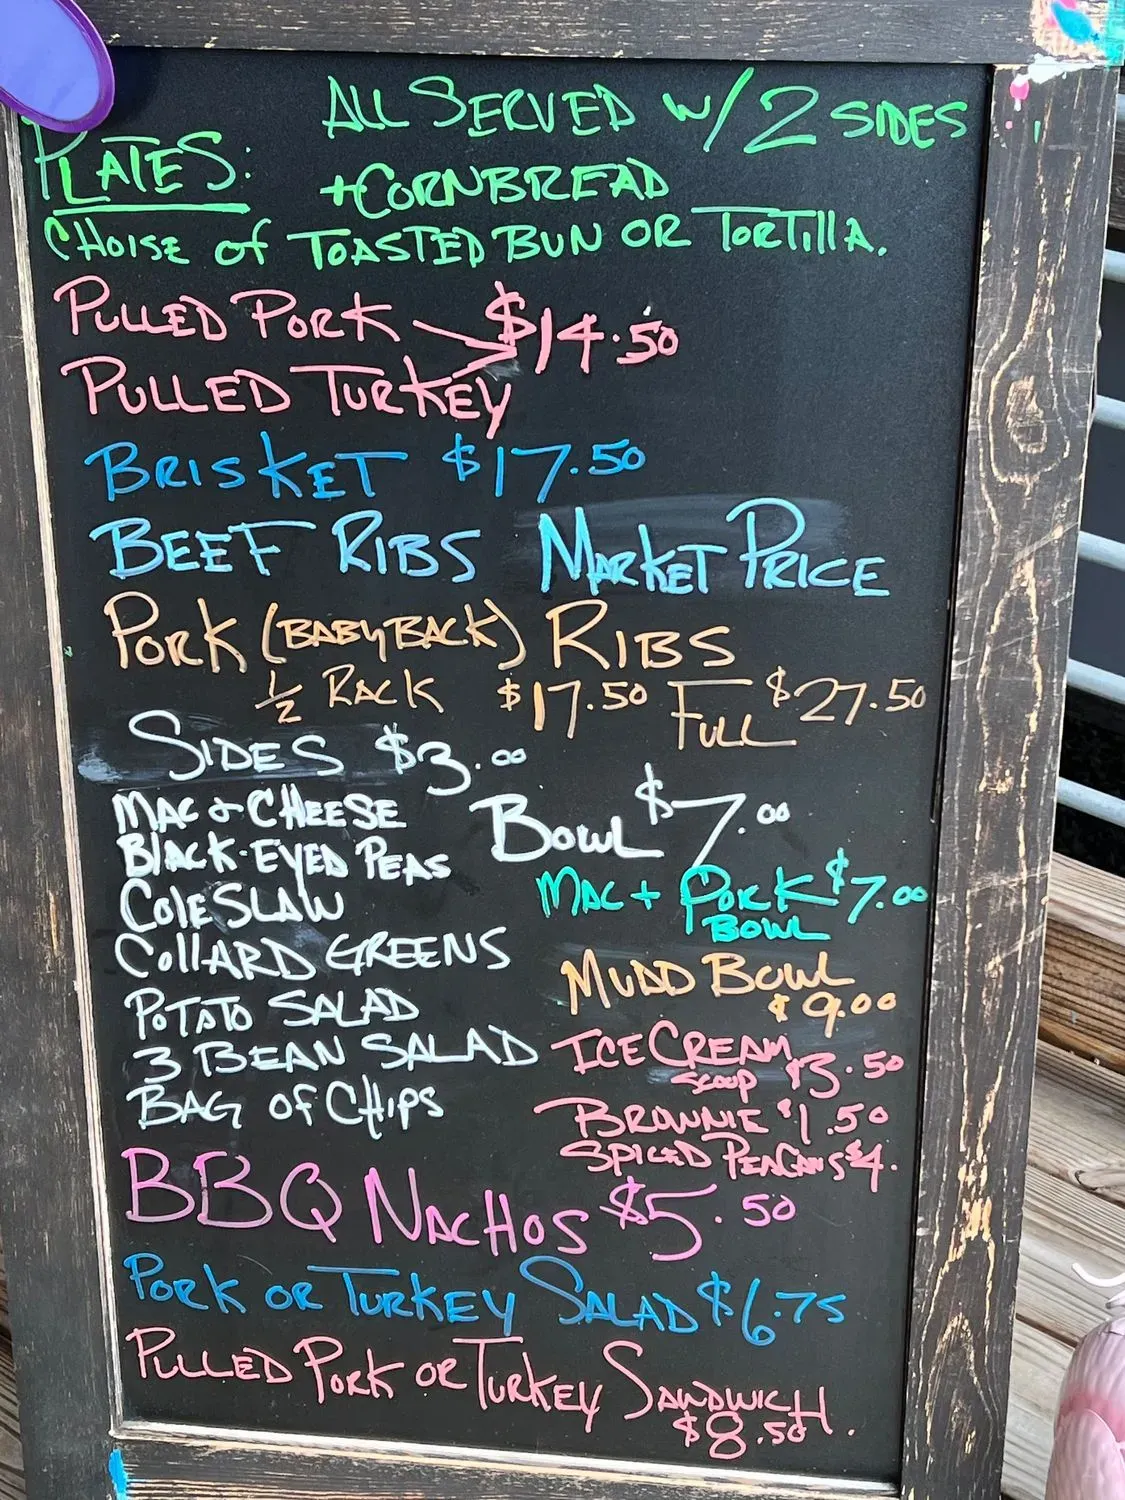 ALL SERVED W/2 SIDES
PLATES: +CORNBREAD
CHOISE OF TOASTED BUN OR TORTILLA.
PULLED PORK $14.50
PULLED TURKEY
BRISKET $17.50
BEEF RIBS MARKET PRICE
PORK (BABYBACK) RIBS
1/2 RACK $17.50 FULL $27.50
SIDES $3.00
MAC & CHEESE
BLACK-EYED PEAS
COLESLAW
COLLARD GREENS
POTATO SALAD
3 BEAN SALAD
BAG OF CHIPS
BOWL $7.00
MAC + PORK $7.00
BOWL
MUDD BOWL
$9.00
ICE CREAM
SCOOP $3.50
BROWNIE $1.50
SPICED PEACANS $4.
BBQ NACHOS $5.50
PORK OR TURKEY SALAD $6.75
PULLED PORK OR TURKEY SANDWICH
$8.50.